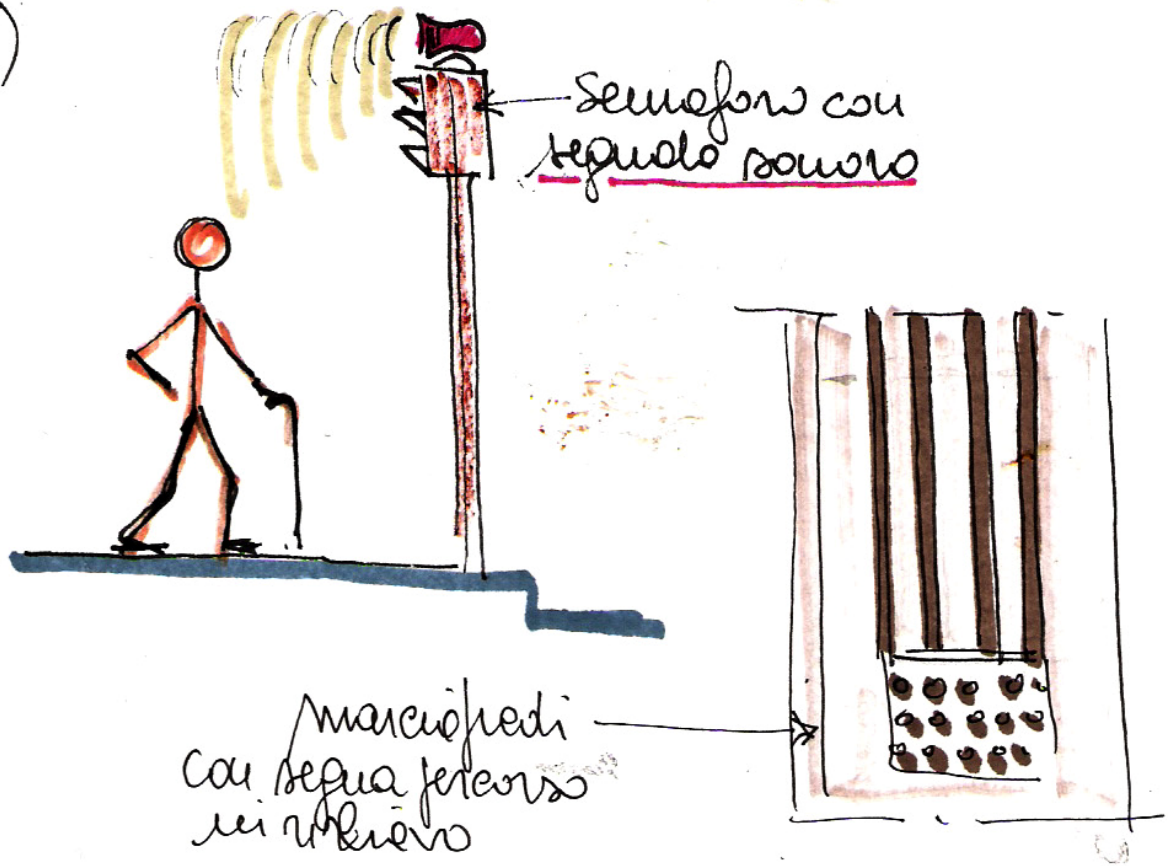 )
Semaforo con
segnale sonoro
marciapiedi
con segna percorso
in rilievo